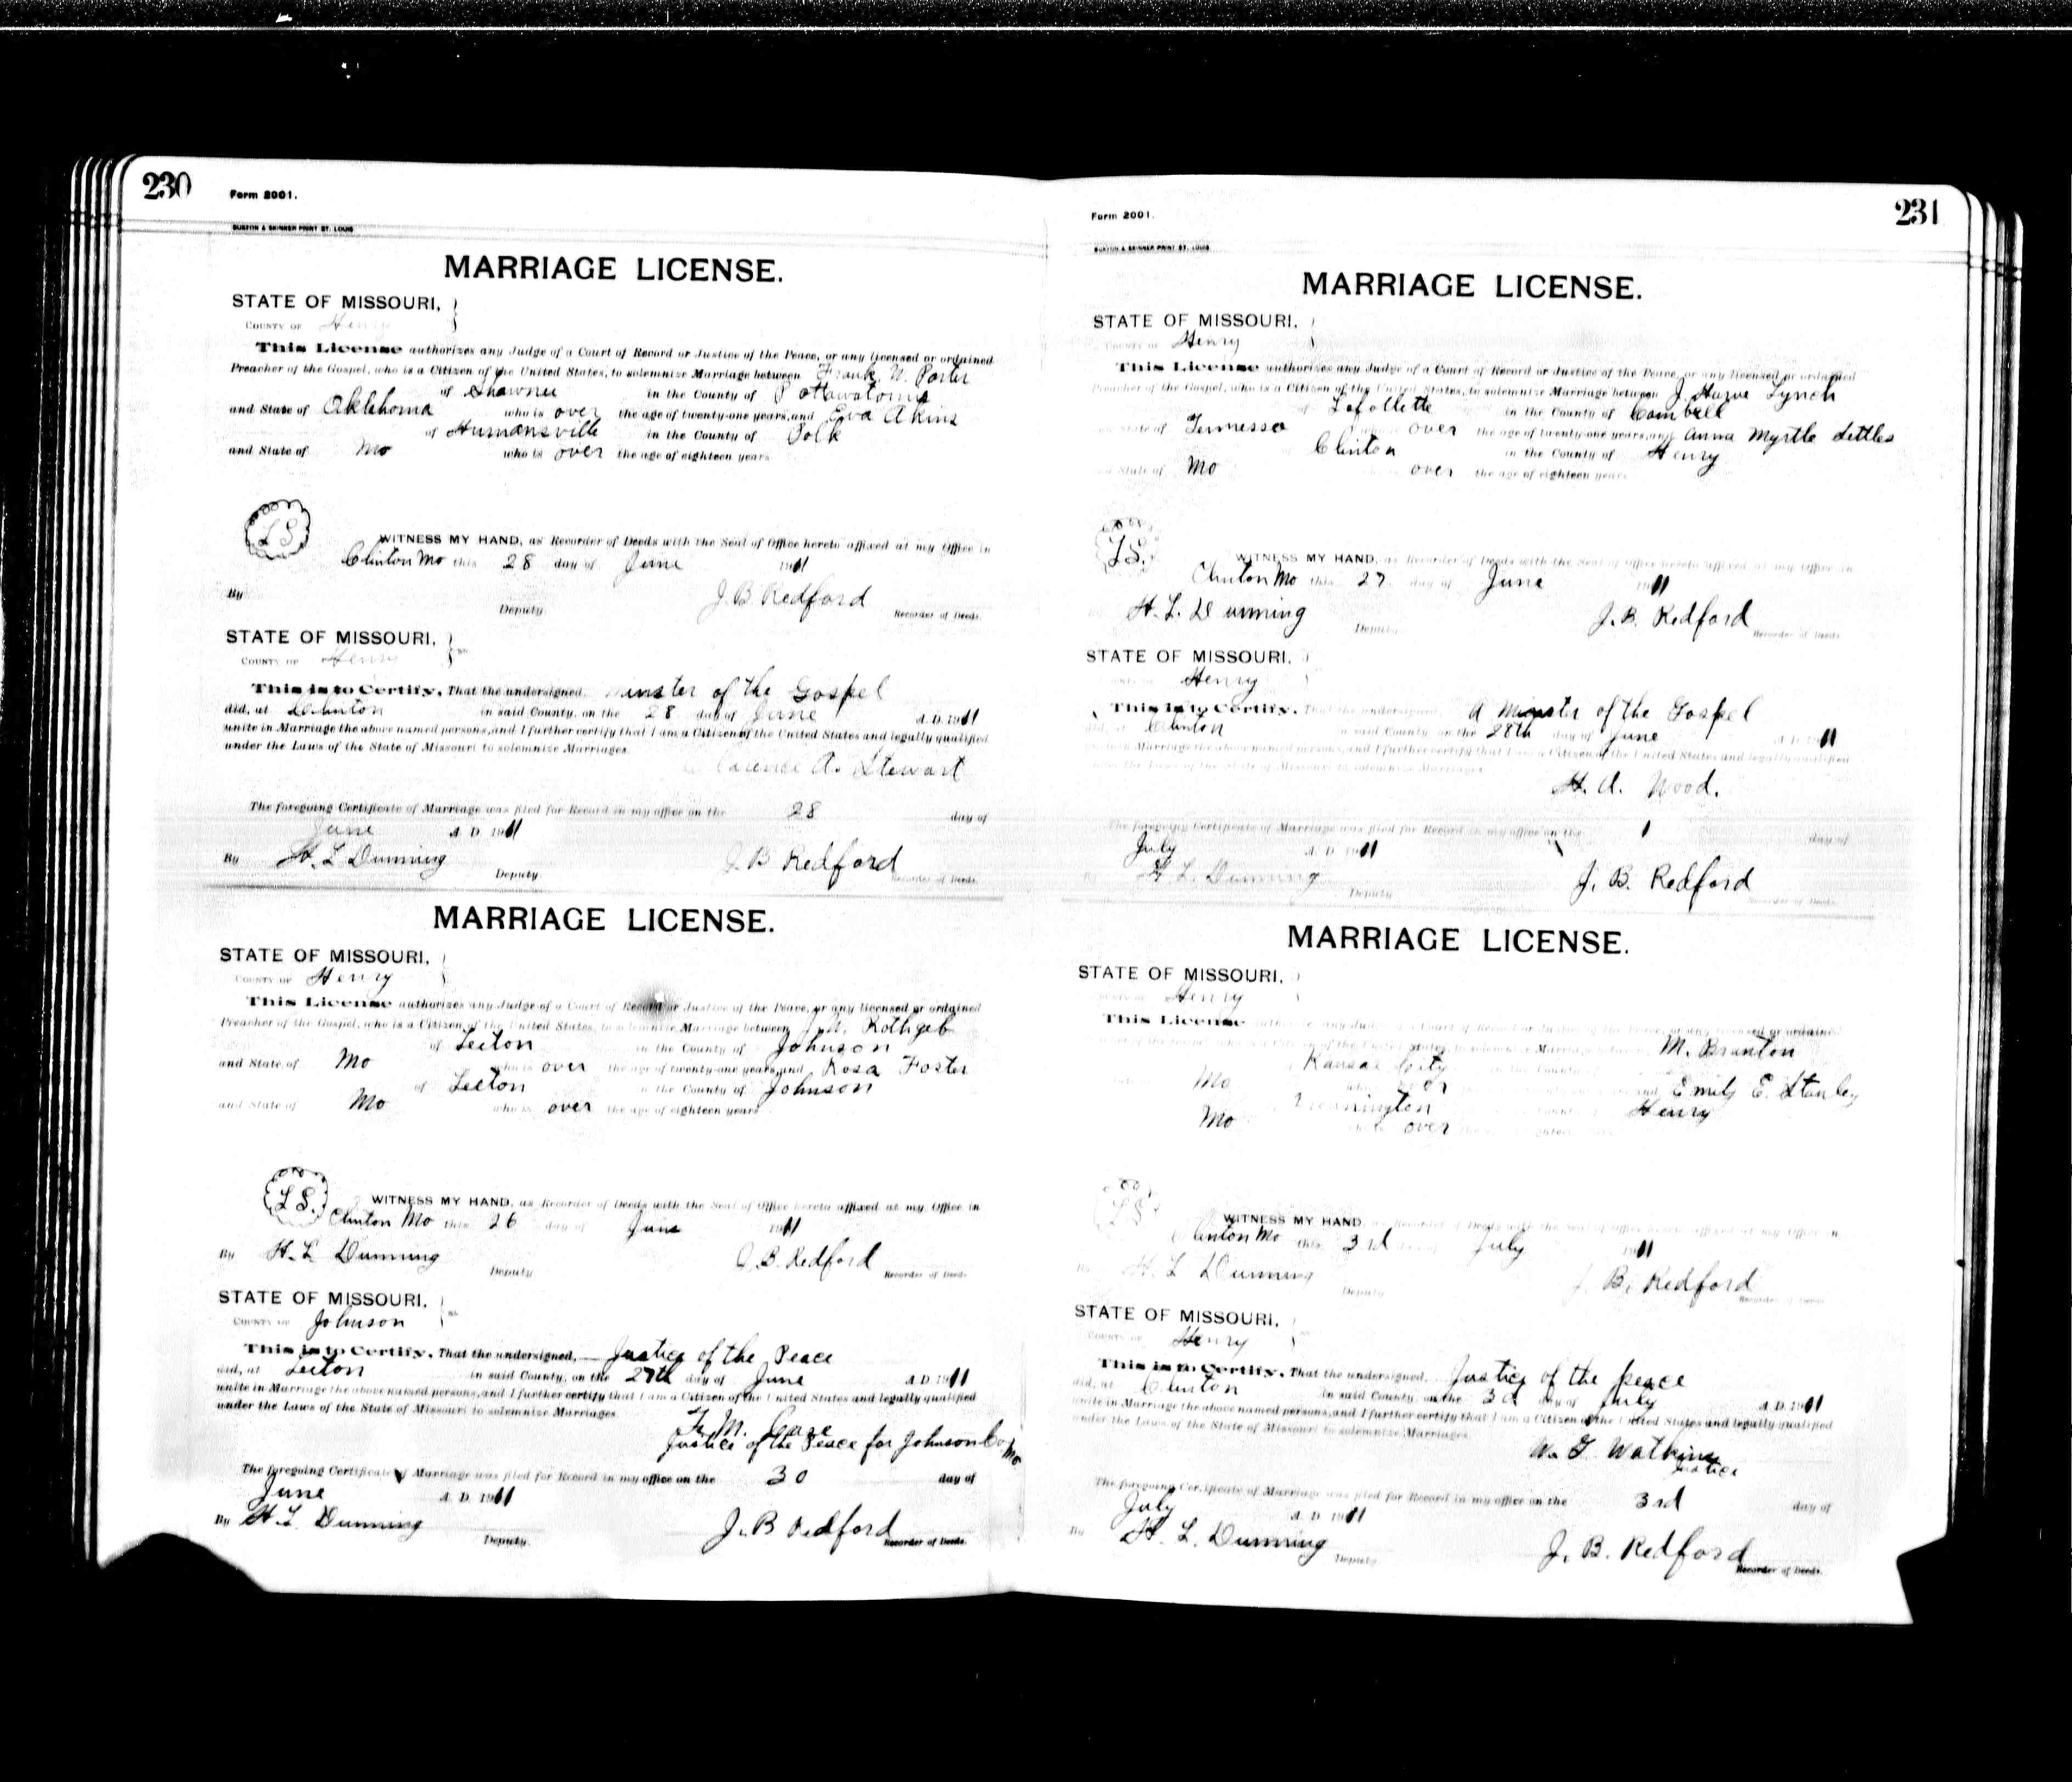 230
Form 2001.
BUXTON & SKINNER PRINT ST. LOUIS
MARRIAGE LICENSE.
STATE OF MISSOURI,
COUNTY OF Henry
This License authorizes any Judge of a Court of Record or Justice of the Peace, or any licensed or ordained
Preacher of the Gospel, who is a Citizen of the United States, to solemnize Marriage between Frank W. Porter
of Shawnee in the County of Pottawatomie
and State of Oklahoma who is over the age of twenty-one years, and Eva Akins
of Humansville in the County of Polk
and State of Mo who is over the age of eighteen years
L S
WITNESS MY HAND, as Recorder of Deeds with the Seal of Office hereto affixed at my Office in
Clinton Mo this 28 day of June 1911
By Deputy J. B. Redford Recorder of Deeds.
STATE OF MISSOURI,
COUNTY OF Henry
This is to Certify, That the undersigned, Minster of the Gospel
did, at Clinton in said County, on the 28 day of June A. D. 1911
unite in Marriage the above named persons, and I further certify that I am a Citizen of the United States and legally qualified
under the Laws of the State of Missouri to solemnize Marriages.
Clarence A. Stewart
The foregoing Certificate of Marriage was filed for Record in my office on the 28 day of
June A. D. 1911
By H. L Dunning Deputy J. B Redford Recorder of Deeds.
MARRIAGE LICENSE.
STATE OF MISSOURI,
COUNTY OF Henry
This License authorizes any Judge of a Court of Record or Justice of the Peace, or any licensed or ordained
Preacher of the Gospel, who is a Citizen of the United States, to solemnize Marriage between Rothgeb
of Leeton in the County of Johnson
and State of Mo who is over the age of twenty-one years, and Rosa Foster
of Leeton in the County of Johnson
and State of Mo who is over the age of eighteen years
L S.
WITNESS MY HAND, as Recorder of Deeds with the Seal of Office hereto affixed at my Office in
Clinton Mo this 26 day of June 1911
By H. L Dunning Deputy J. B. Redford Recorder of Deeds.
STATE OF MISSOURI,
COUNTY OF Johnson
This is to Certify, That the undersigned, Justice of the Peace
did, at Leeton in said County, on the 27th day of June A. D. 1911
unite in Marriage the above named persons, and I further certify that I am a Citizen of the United States and legally qualified
under the Laws of the State of Missouri to solemnize Marriages.
M.
Justice of the Peace for Johnson Co Mo
The foregoing Certificate of Marriage was filed for Record in my office on the 30 day of
June A. D. 1911
By H. L Dunning Deputy J. B Redford Recorder of Deeds.
231
Form 2001.
BUXTON & SKINNER PRINT ST. LOUIS
MARRIAGE LICENSE.
STATE OF MISSOURI,
COUNTY OF Henry
This License authorizes any Judge of a Court of Record or Justice of the Peace, or any licensed or ordained
Preacher of the Gospel, who is a Citizen of the United States, to solemnize Marriage between J. Lynch
of Lafollette in the County of Cambell
and State of Tennessee who is over the age of twenty-one years, and Anna Myrtle Settles
Clinton in the County of Henry
and State of Mo over the age of eighteen years
L S.
WITNESS MY HAND, as Recorder of Deeds with the Seal of Office hereto affixed at my Office in
Clinton Mo this 27 day of June 1911
H. L. Dunning Deputy J. B. Redford Recorder of Deeds.
STATE OF MISSOURI,
Henry
This is to Certify, That the undersigned, A Minister of the Gospel
did, at Clinton in said County, on the 28th day of June A. D. 1911
unite in Marriage the above named persons, and I further certify that I am a Citizen of the United States and legally qualified
under the Laws of the State of Missouri to solemnize Marriages.
H. A. Wood.
The foregoing Certificate of Marriage was filed for Record in my office on the 1 day of
July A. D. 1911
By H. L. Dunning Deputy J. B. Redford Recorder of Deeds.
MARRIAGE LICENSE.
STATE OF MISSOURI,
Henry
This License authorizes any Judge of a Court of Record or Justice of the Peace, or any licensed or ordained
Preacher of the Gospel, who is a Citizen of the United States, to solemnize Marriage between M. Branton
Kansas City in the County of
Mo who is over and Emily E. Stanley
County of Henry
Mo over
L S
WITNESS MY HAND, as Recorder of Deeds with the Seal of Office hereto affixed at my Office in
Clinton Mo this 3rd July 1911
By H. L Dunning Deputy J. B. Redford Recorder of Deeds.
STATE OF MISSOURI,
COUNTY OF Henry
This is to Certify, That the undersigned, Justice of the peace
did, at Clinton in said County, on the 3d day of July A. D. 1911
unite in Marriage the above named persons, and I further certify that I am a Citizen of the United States and legally qualified
under the Laws of the State of Missouri to solemnize Marriages.
Watkins
Justice
The foregoing Certificate of Marriage was filed for Record in my office on the 3rd day of
July A. D. 1911
By H. L. Dunning Deputy J. B. Redford Recorder of Deeds.